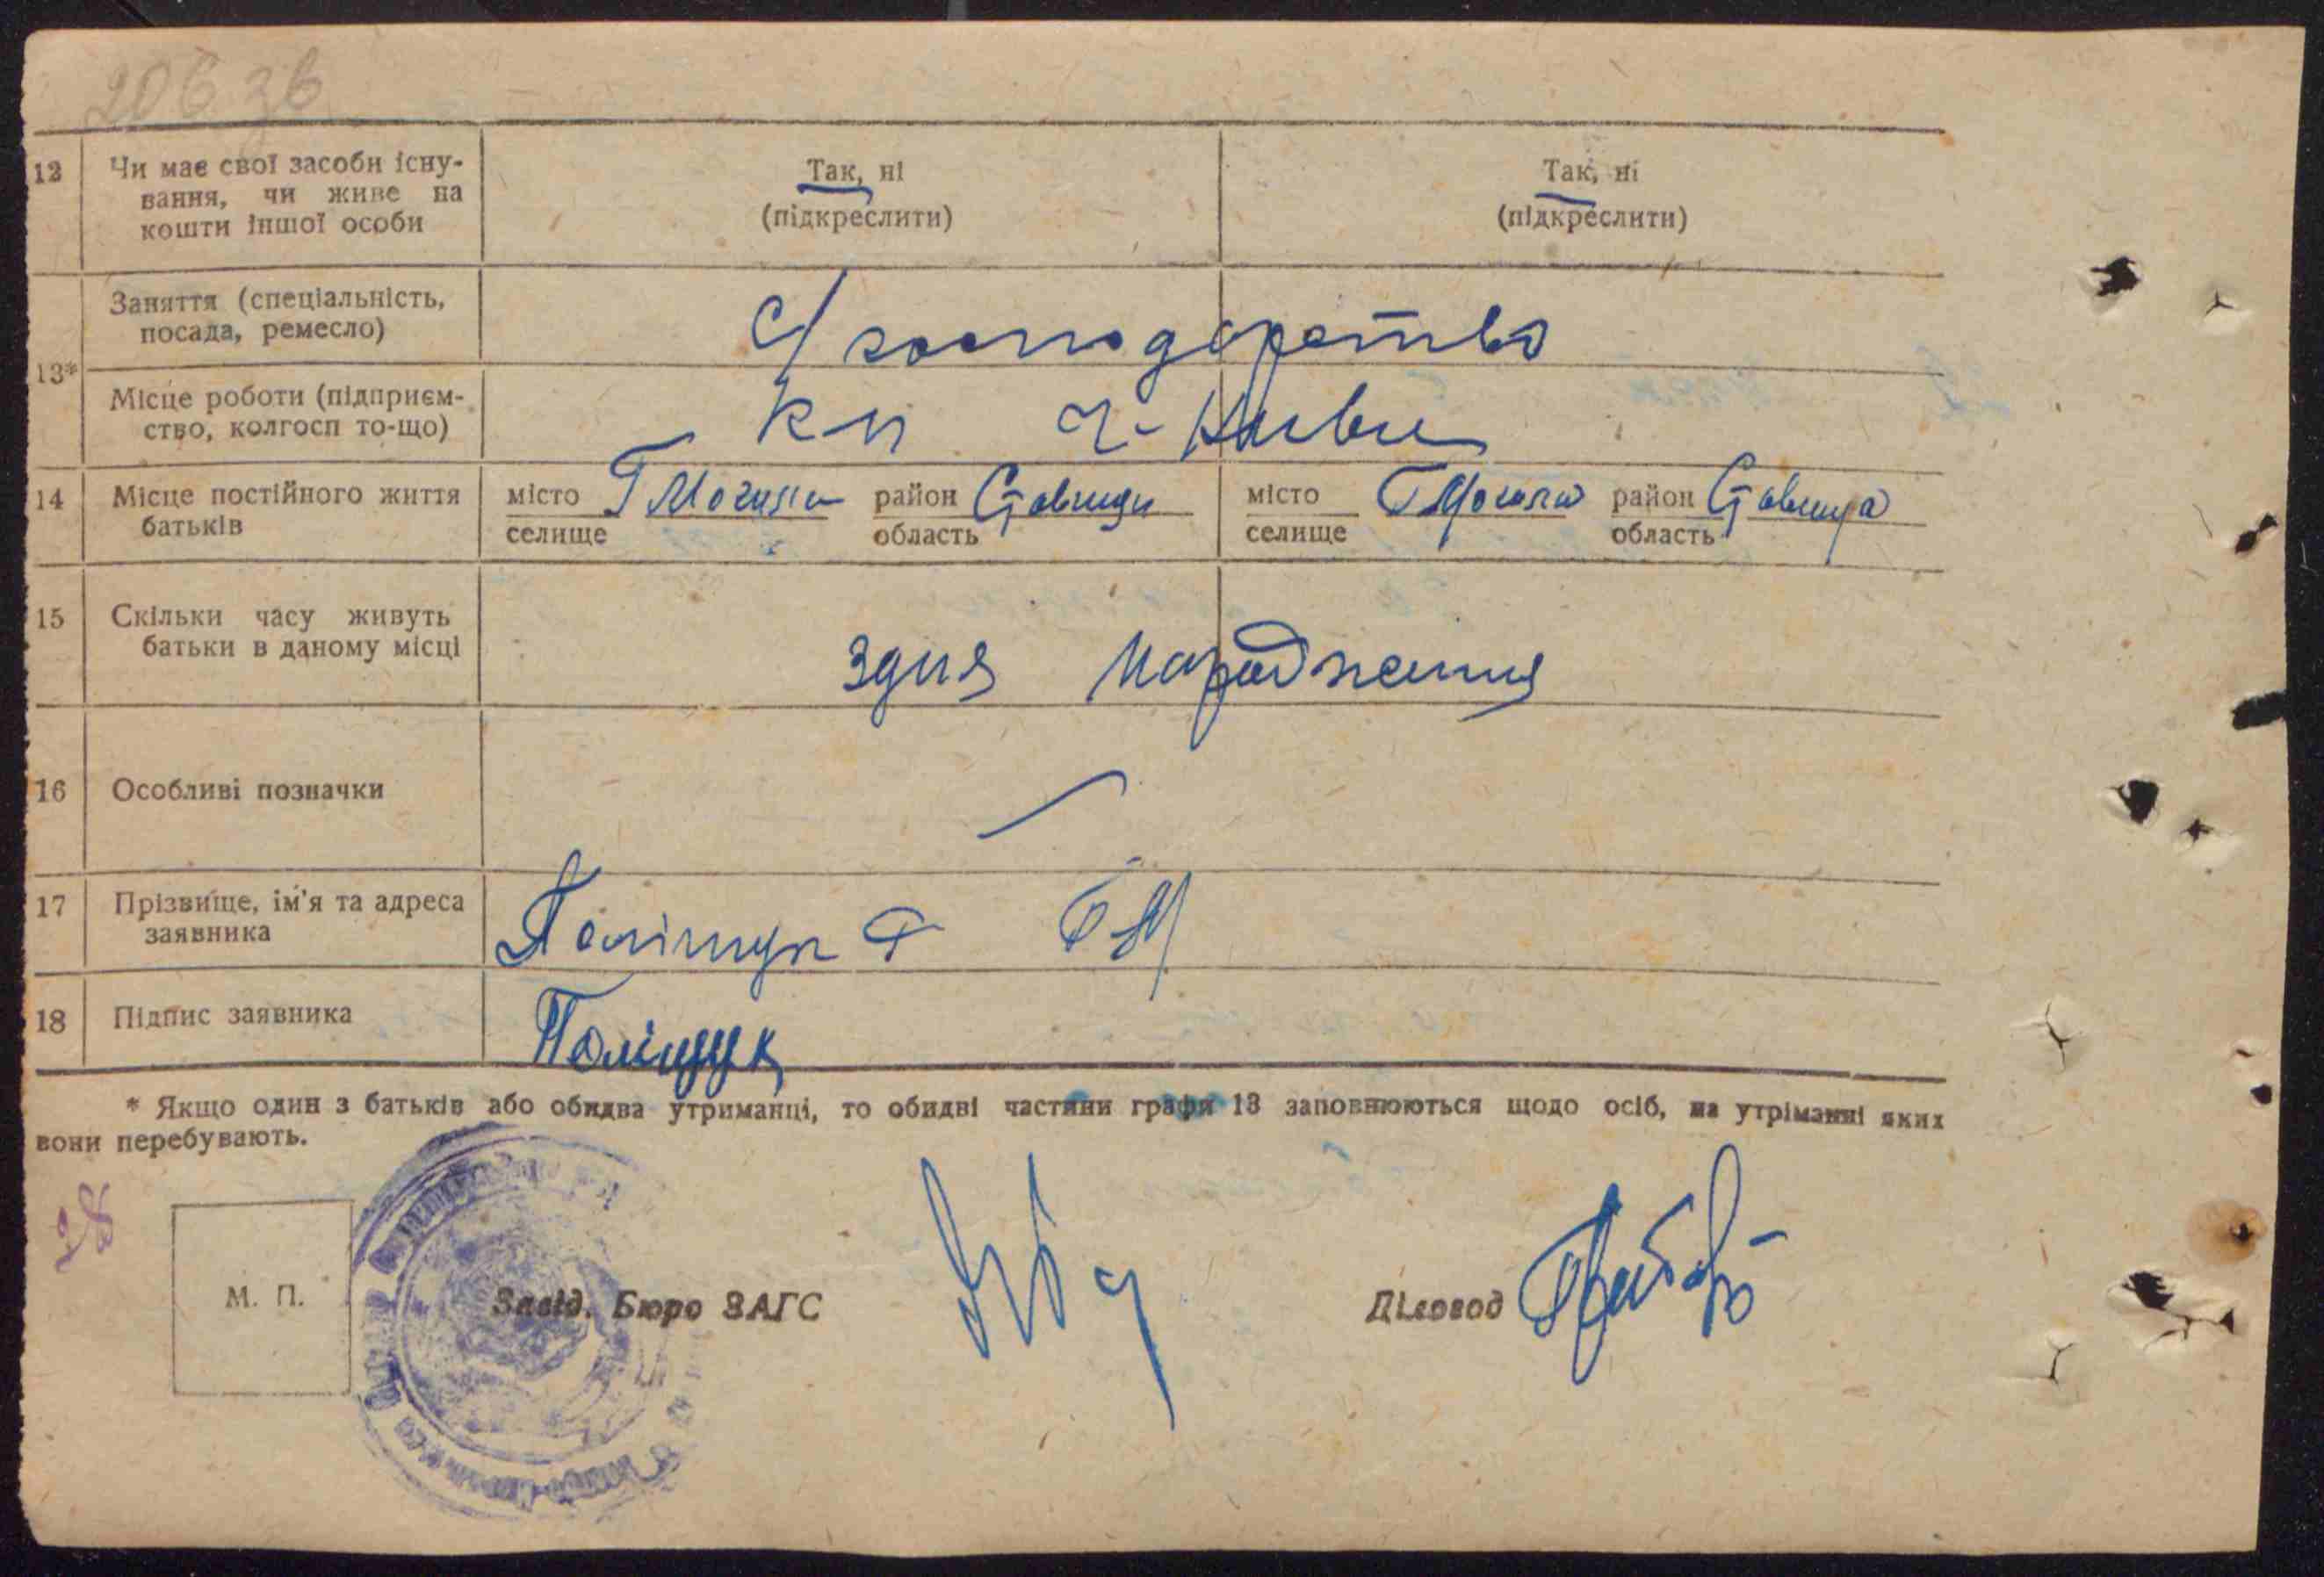 206 зв
12 Чи має свої засоби існу-
вання, чи живе на
кошти іншої особи
Так, ні
(підкреслити)
Так, ні
(підкреслити)
13*
Заняття (спеціальність,
посада, ремесло)
с/господарство
Місце роботи (підприєм-
ство, колгосп то-що)
Кп Ч-Ниви
14 Місце постійного життя
батьків
місто
селище
Г Могила
район
область
Ставищи
місто
селище
Г Могила
район
область
Ставища
15 Скільки часу живуть
батьки в даному місці
здня народження
16 Особливі позначки
17 Прізвище, ім'я та адреса
заявника
Поліщук Ф Г М
18 Підпис заявника
Поліщук
* Якщо один з батьків або обидва утриманці, то обидві частини графи 13 заповнюються щодо осіб, на утріманні яких
вони перебувають.
М. П.
Завід. Бюро ЗАГС
Діловод